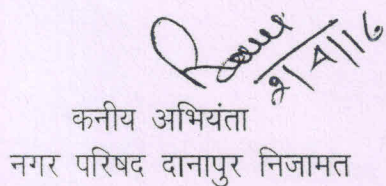 2/4/16
कनीय अभियंता
नगर परिषद दानापुर निजामत